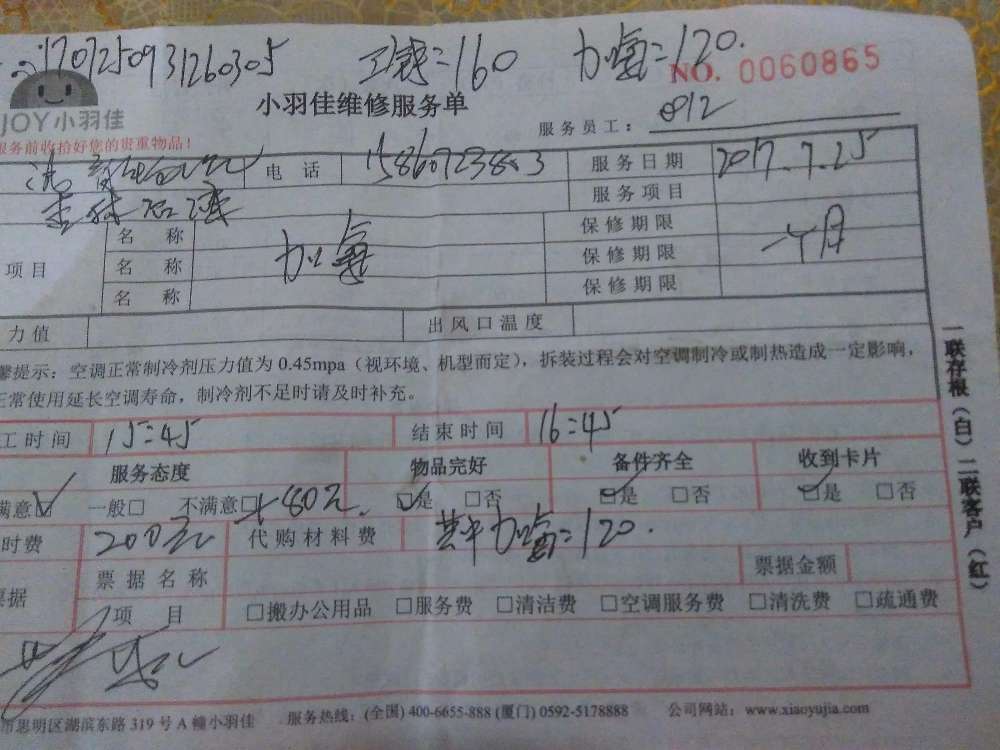 1707250931260305 工钱=160 加氟=120.
NO. 0060865
小羽佳维修服务单
JOY小羽佳
服务员工: 0812
服务前收拾好您的贵重物品!
电 话 15860723803 服务日期 2017.7.25
服务项目
名 称 保修期限
项目 名 称 加氟 保修期限 一个月
名 称 保修期限
力值 出风口温度
馨提示: 空调正常制冷剂压力值为 0.45mpa (视环境、机型而定), 拆装过程会对空调制冷或制热造成一定影响,
正常使用延长空调寿命, 制冷剂不足时请及时补充。
工时间 15:45 结束时间 16:45
服务态度 物品完好 备件齐全 收到卡片
满意☑ 一般□ 不满意□ +80元. ☑是 □否 ☑是 □否 ☑是 □否
时费 200元 代购材料费 其中加氟=120.
票据 票据名称 票据金额
项 目 □搬办公用品 □服务费 □清洁费 □空调服务费 □清洗费 □疏通费
市思明区湖滨东路 319 号 A 幢小羽佳 服务热线: (全国) 400-6655-888 (厦门) 0592-5178888 公司网站: www.xiaoyujia.com
一联存根(白)二联客户(红)